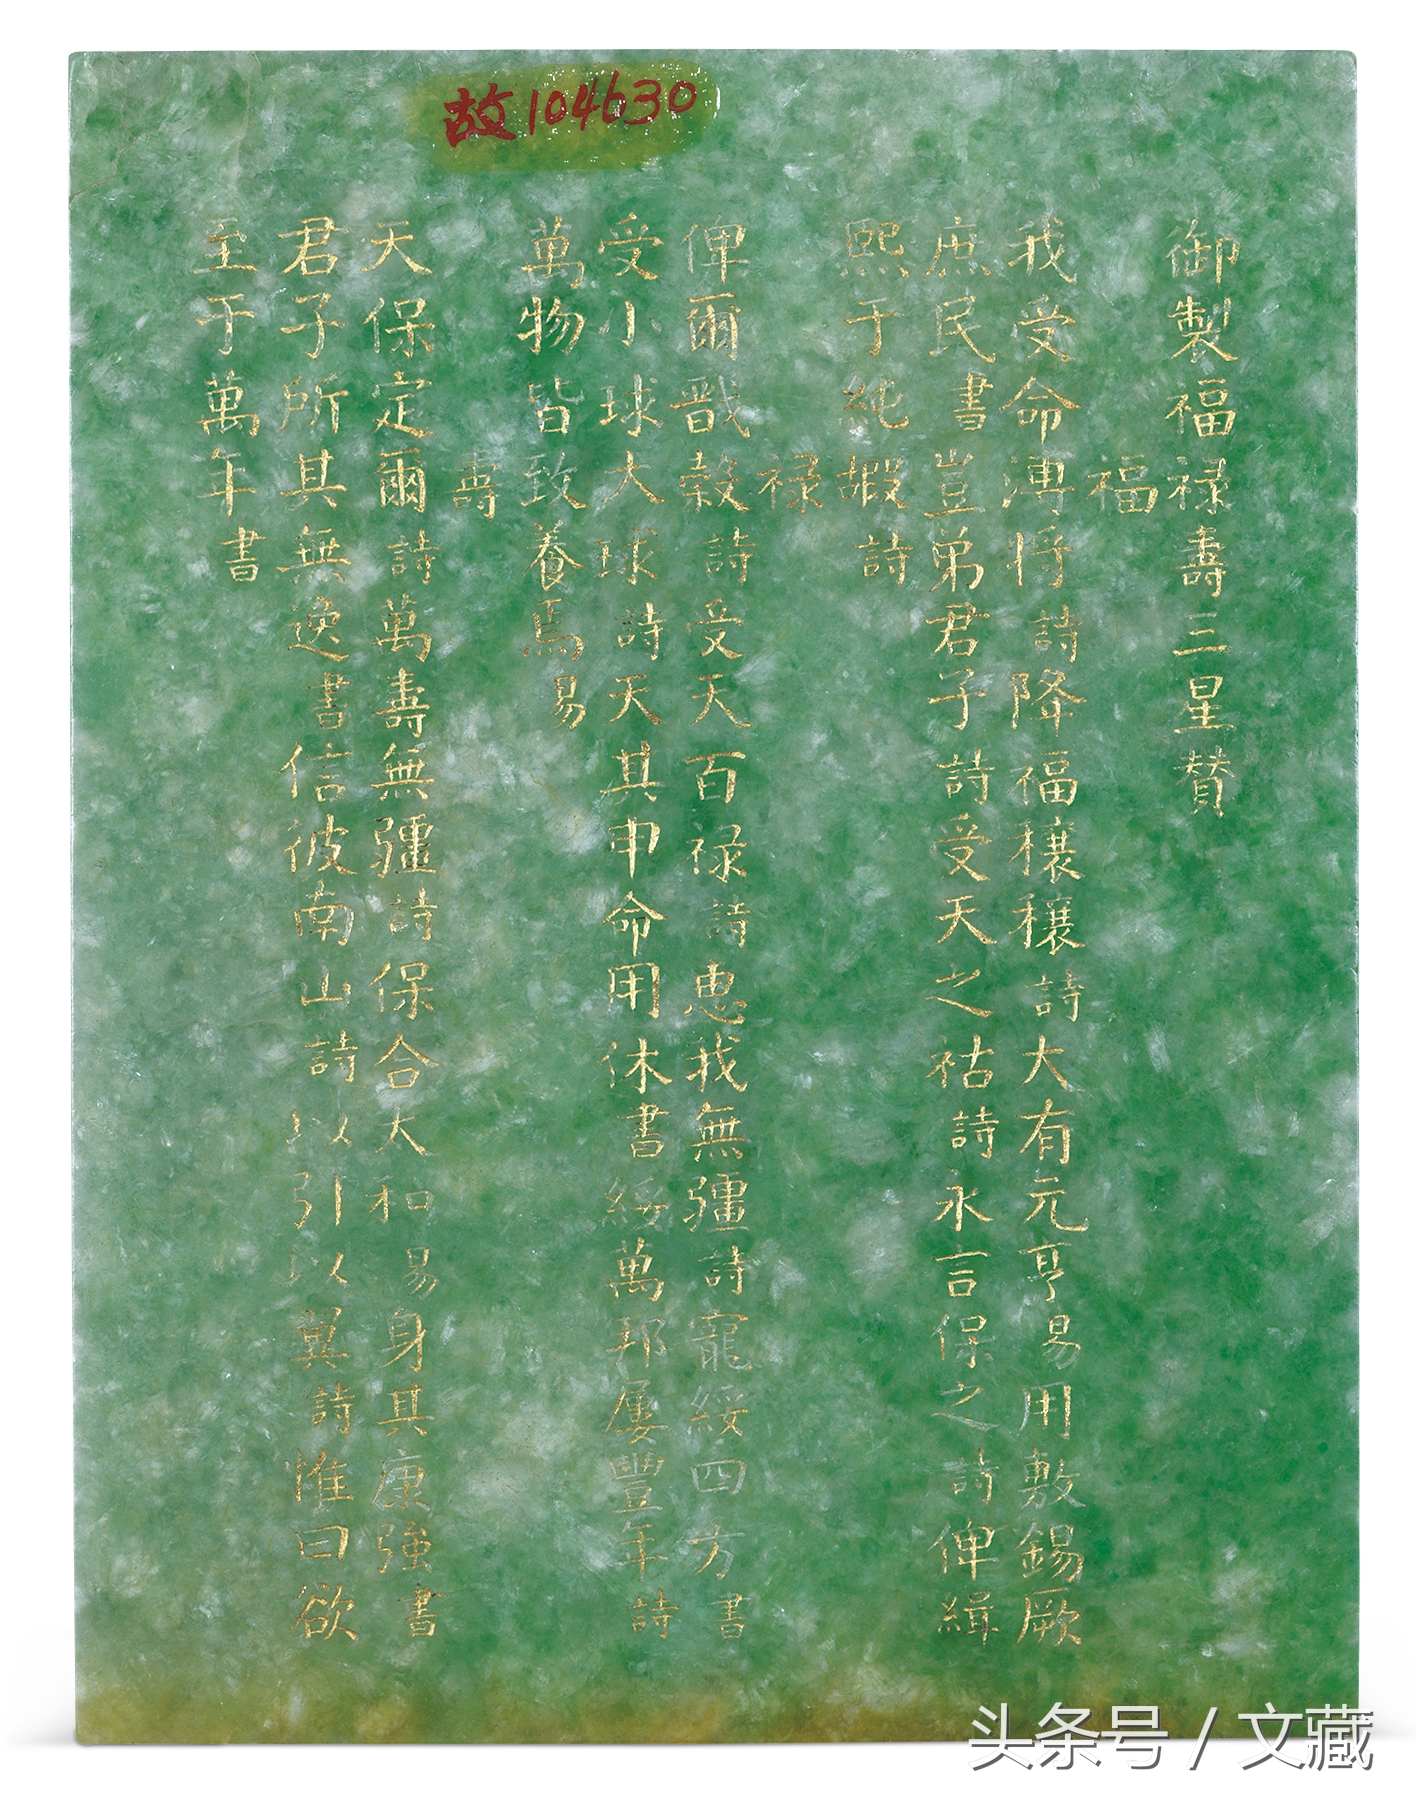 故104630
御製福祿壽三星贊
福
我受命溥將詩降福穰穰詩大有元亨易用敷錫厥
庶民書豈弟君子詩受天之祜詩永言保之詩俾緝
熙于純嘏詩
祿
俾爾戩穀詩受天百祿詩惠我無疆詩寵綏四方書
受小球大球詩天其申命用休書綏萬邦屢豐年詩
萬物皆致養焉易
壽
天保定爾詩萬壽無疆詩保合太和易身其康強書
君子所其無逸書信彼南山詩以引以翼詩惟曰欲
至于萬年書
头条号 / 文藏